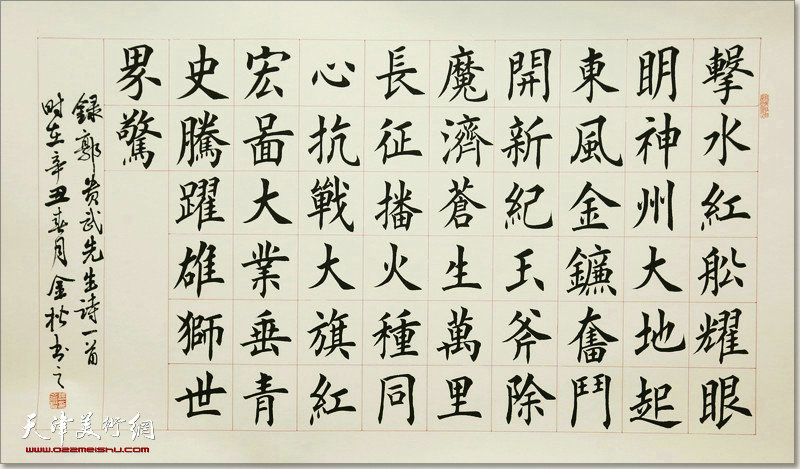 擊水紅船耀眼
明神州大地起
東風金鐮奮鬥
開新紀玉斧除
魔濟蒼生萬里
長征播火種同
心抗戰大旗紅
宏圖大業垂青
史騰躍雄獅世
界驚
錄郭贵武先生詩一首
时在辛丑春月金松书之
天津美术網
www.022meishu.com